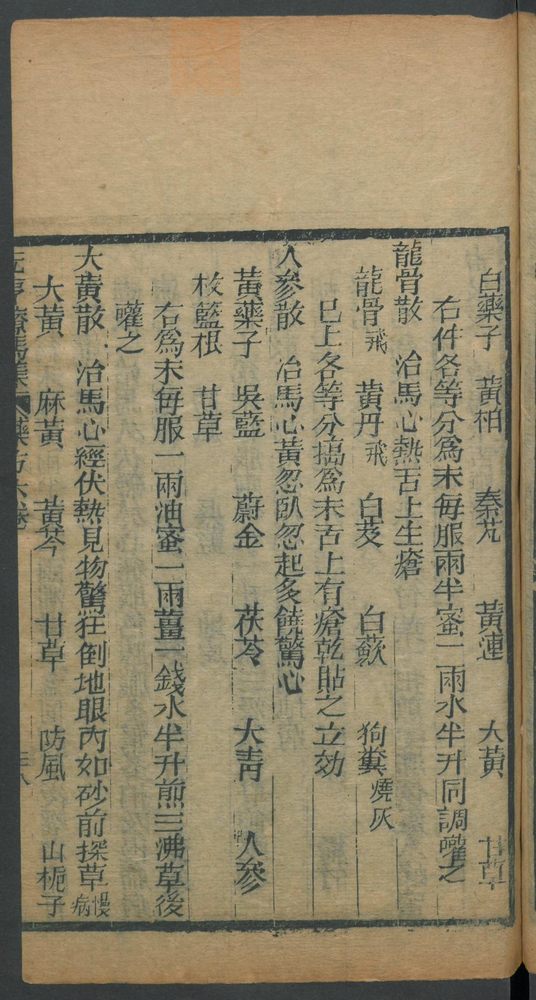 白藥子 黃柏 秦艽 黃連 大黃 甘草
右件各等分爲末每服兩半蜜一兩水半升同調嚾之
龍骨散 治馬心熱舌上生瘡
龍骨飛 黃丹飛 白芨 白蘞 狗糞燒灰
已上各等分搗爲末舌上有瘡乾貼之立効
人參散 治馬心黃忽臥忽起多饒驚心
黃藥子 吳藍 蔚金 茯苓 大靑 人參
校籃根 甘草
右爲末每服一兩油蜜一兩薑一錢水半升煎三沸草後
嚾之
大黃散 治馬心經伏熱見物驚狂倒地眼內如砂前探草慢病
大黃 麻黃 黃芩 甘草 防風 山梔子
元亨療馬集 藥方六卷